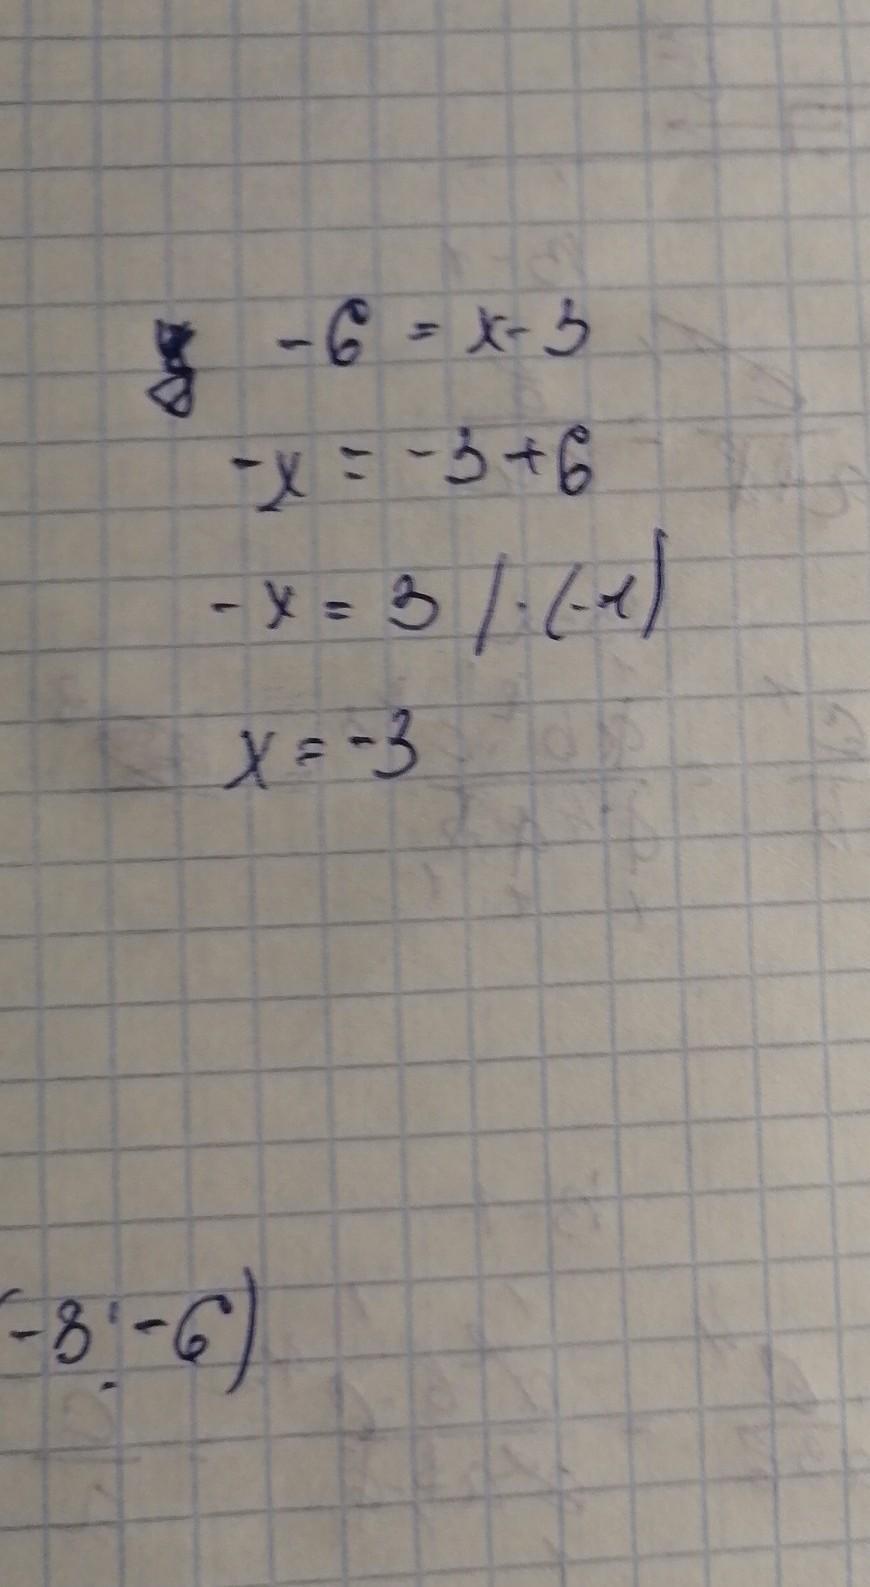 -6 = x-3
-x = -3+6
-x = 3 /·(-1)
x = -3
(-3; -6)